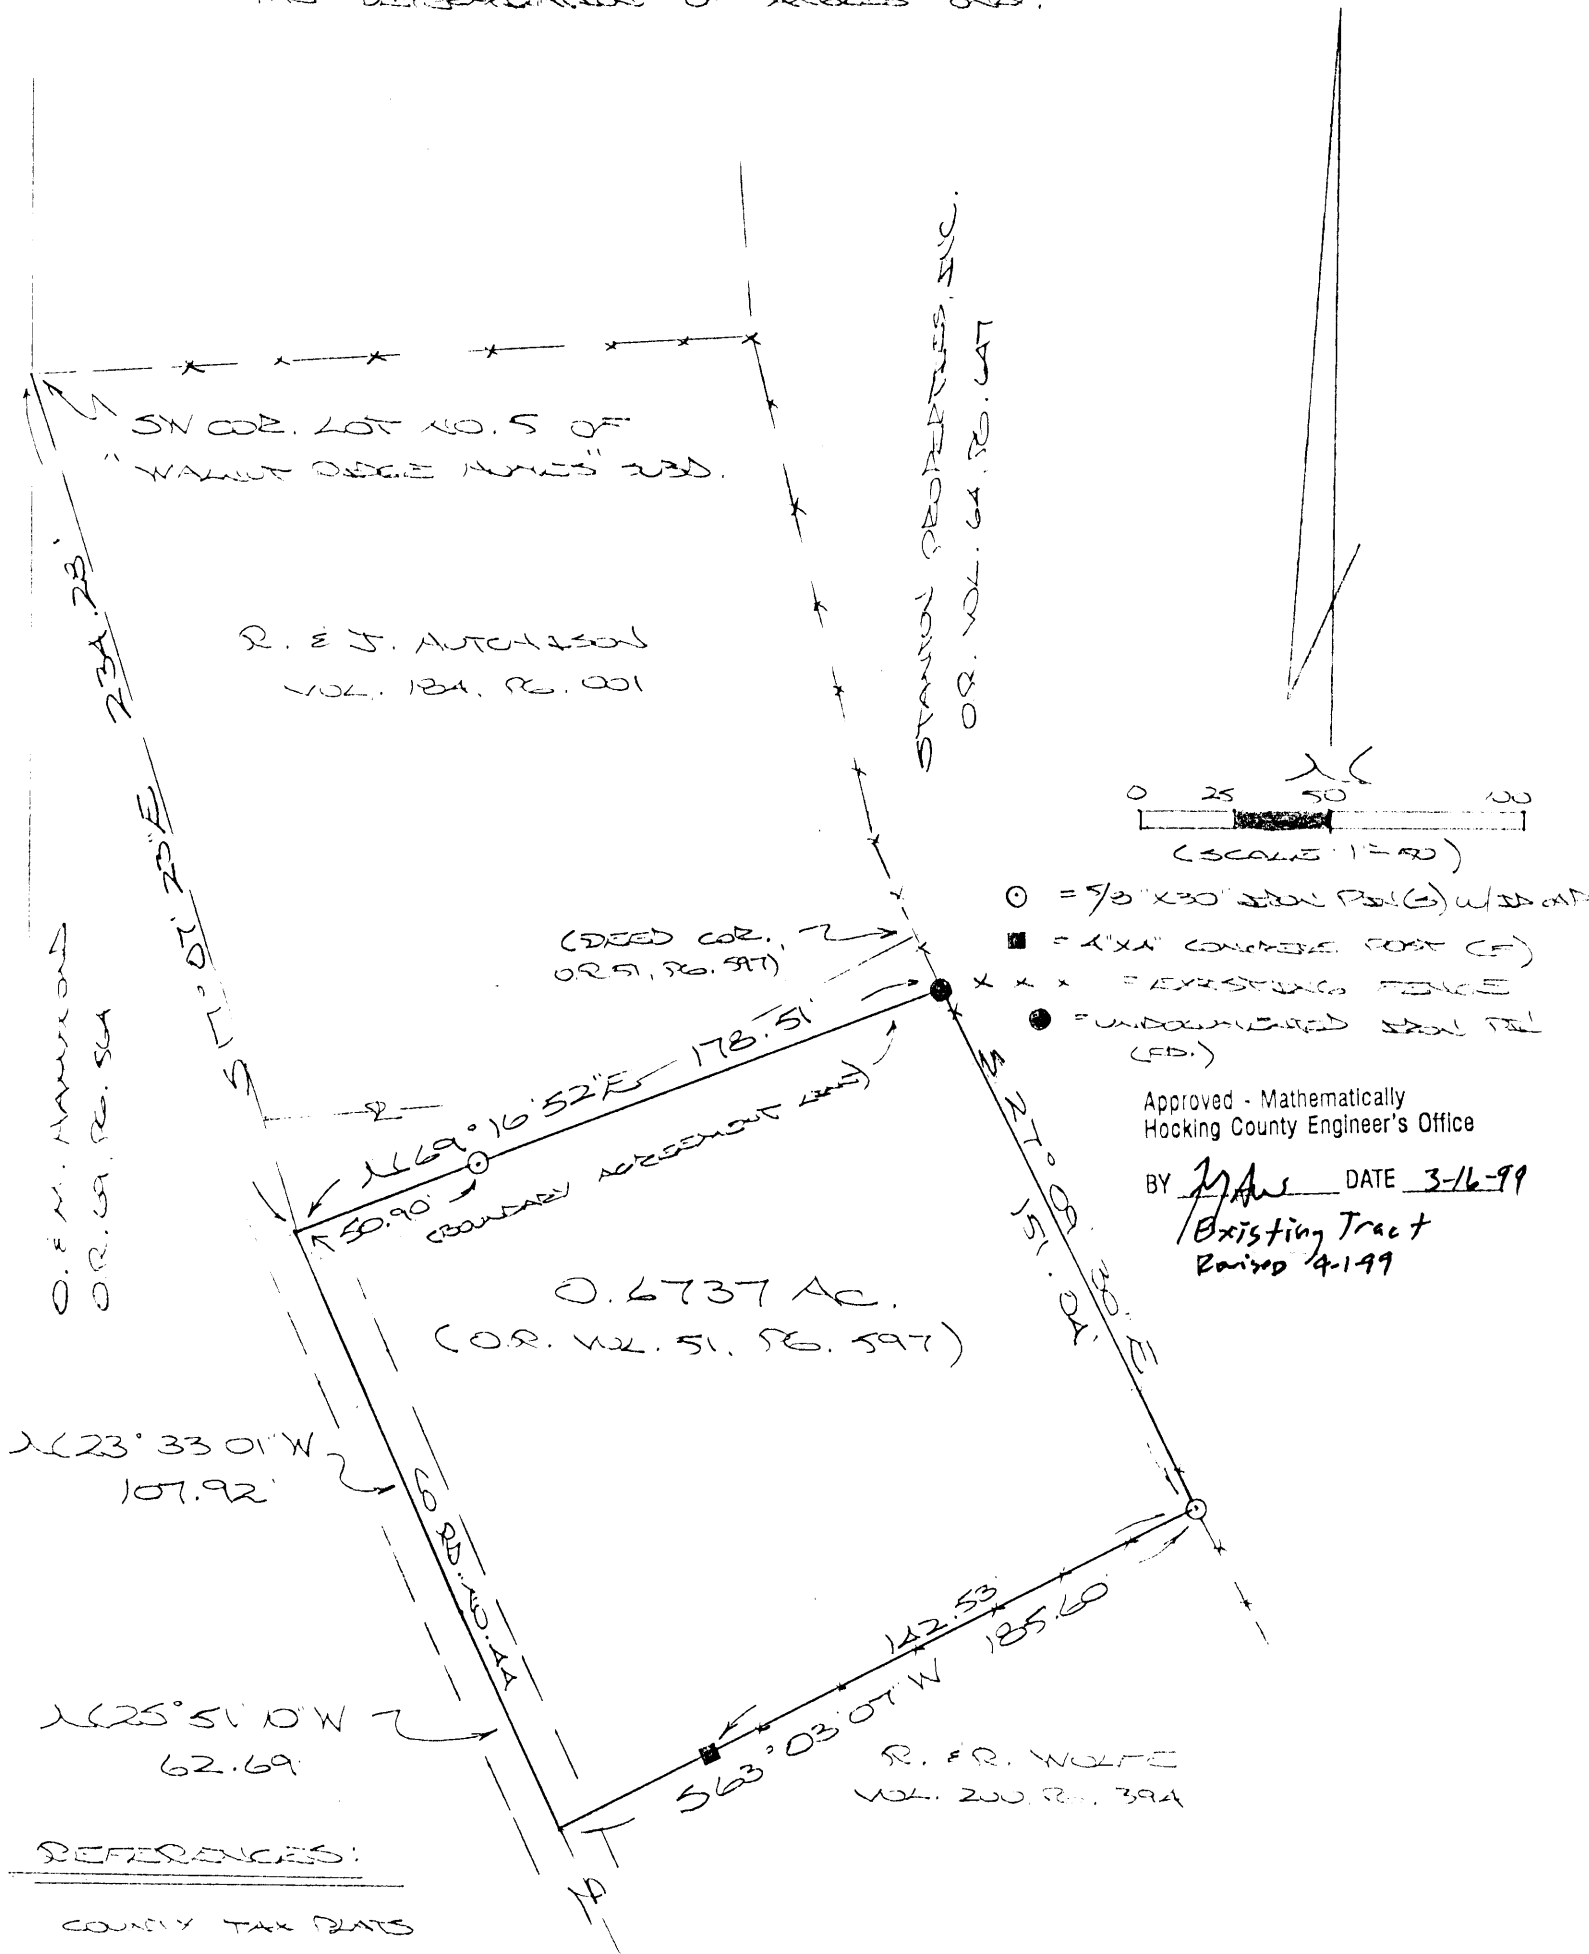 SW COR. LOT NO. 5 OF
"WALNUT RIDGE HOMES" SBD.
234.23'
S 17° 07' 23" E
R. & J. HUTCHISON
VOL. 184, PG. 001
STANTON PROPERTIES, INC.
O.R. VOL. 64, PG. 647
N
0 25 50 100
(SCALE 1"=50')
= 5/8"X30" IRON PIN(S) W/ID CAP
= 4"X4" CONCRETE POST (F)
X X X = EXISTING FENCE
= UNDOCUMENTED IRON PIN
(FD.)
Approved - Mathematically
Hocking County Engineer's Office
BY DATE 3-16-99
Existing Tract
Revised 4-1-99
(DEED COR.,
O.R. 51, PG. 597)
O. & M. HAMMOND
O.R. 69, PG. 564
N 69° 16' 52" E 178.51'
50.90'
(BOUNDARY AGREEMENT LINE)
S 27° 08' 30" E
151.04'
0.6737 AC.
(O.R. VOL. 51, PG. 597)
N 23° 33' 01" W
107.92'
RD. NO. 44
142.53'
185.60'
S 63° 03' 07" W
N 25° 51' 10" W
62.69'
R. & R. WOLFE
VOL. 200, PG. 394
REFERENCES:
COUNTY TAX PLATS